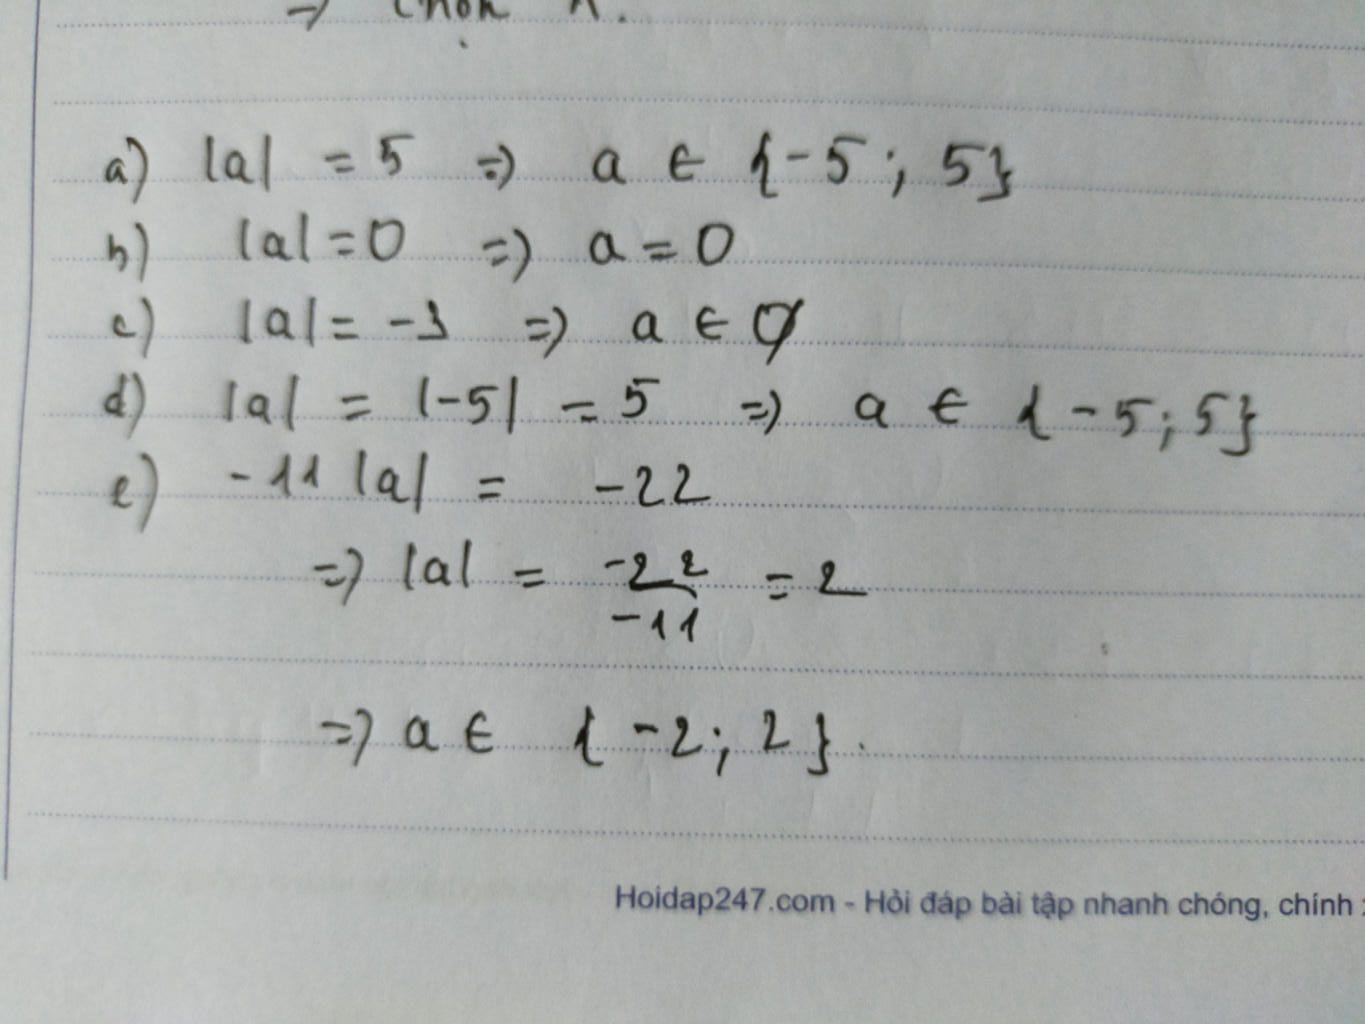 a) |a| = 5 => a ∈ {-5; 5}
b) |a| = 0 => a = 0
c) |a| = -3 => a ∈ ∅
d) |a| = |-5| = 5 => a ∈ {-5; 5}
e) -11 |a| = -22
=> |a| = -22/-11 = 2
=> a ∈ {-2; 2}.
Hoidap247.com - Hỏi đáp bài tập nhanh chóng, chính